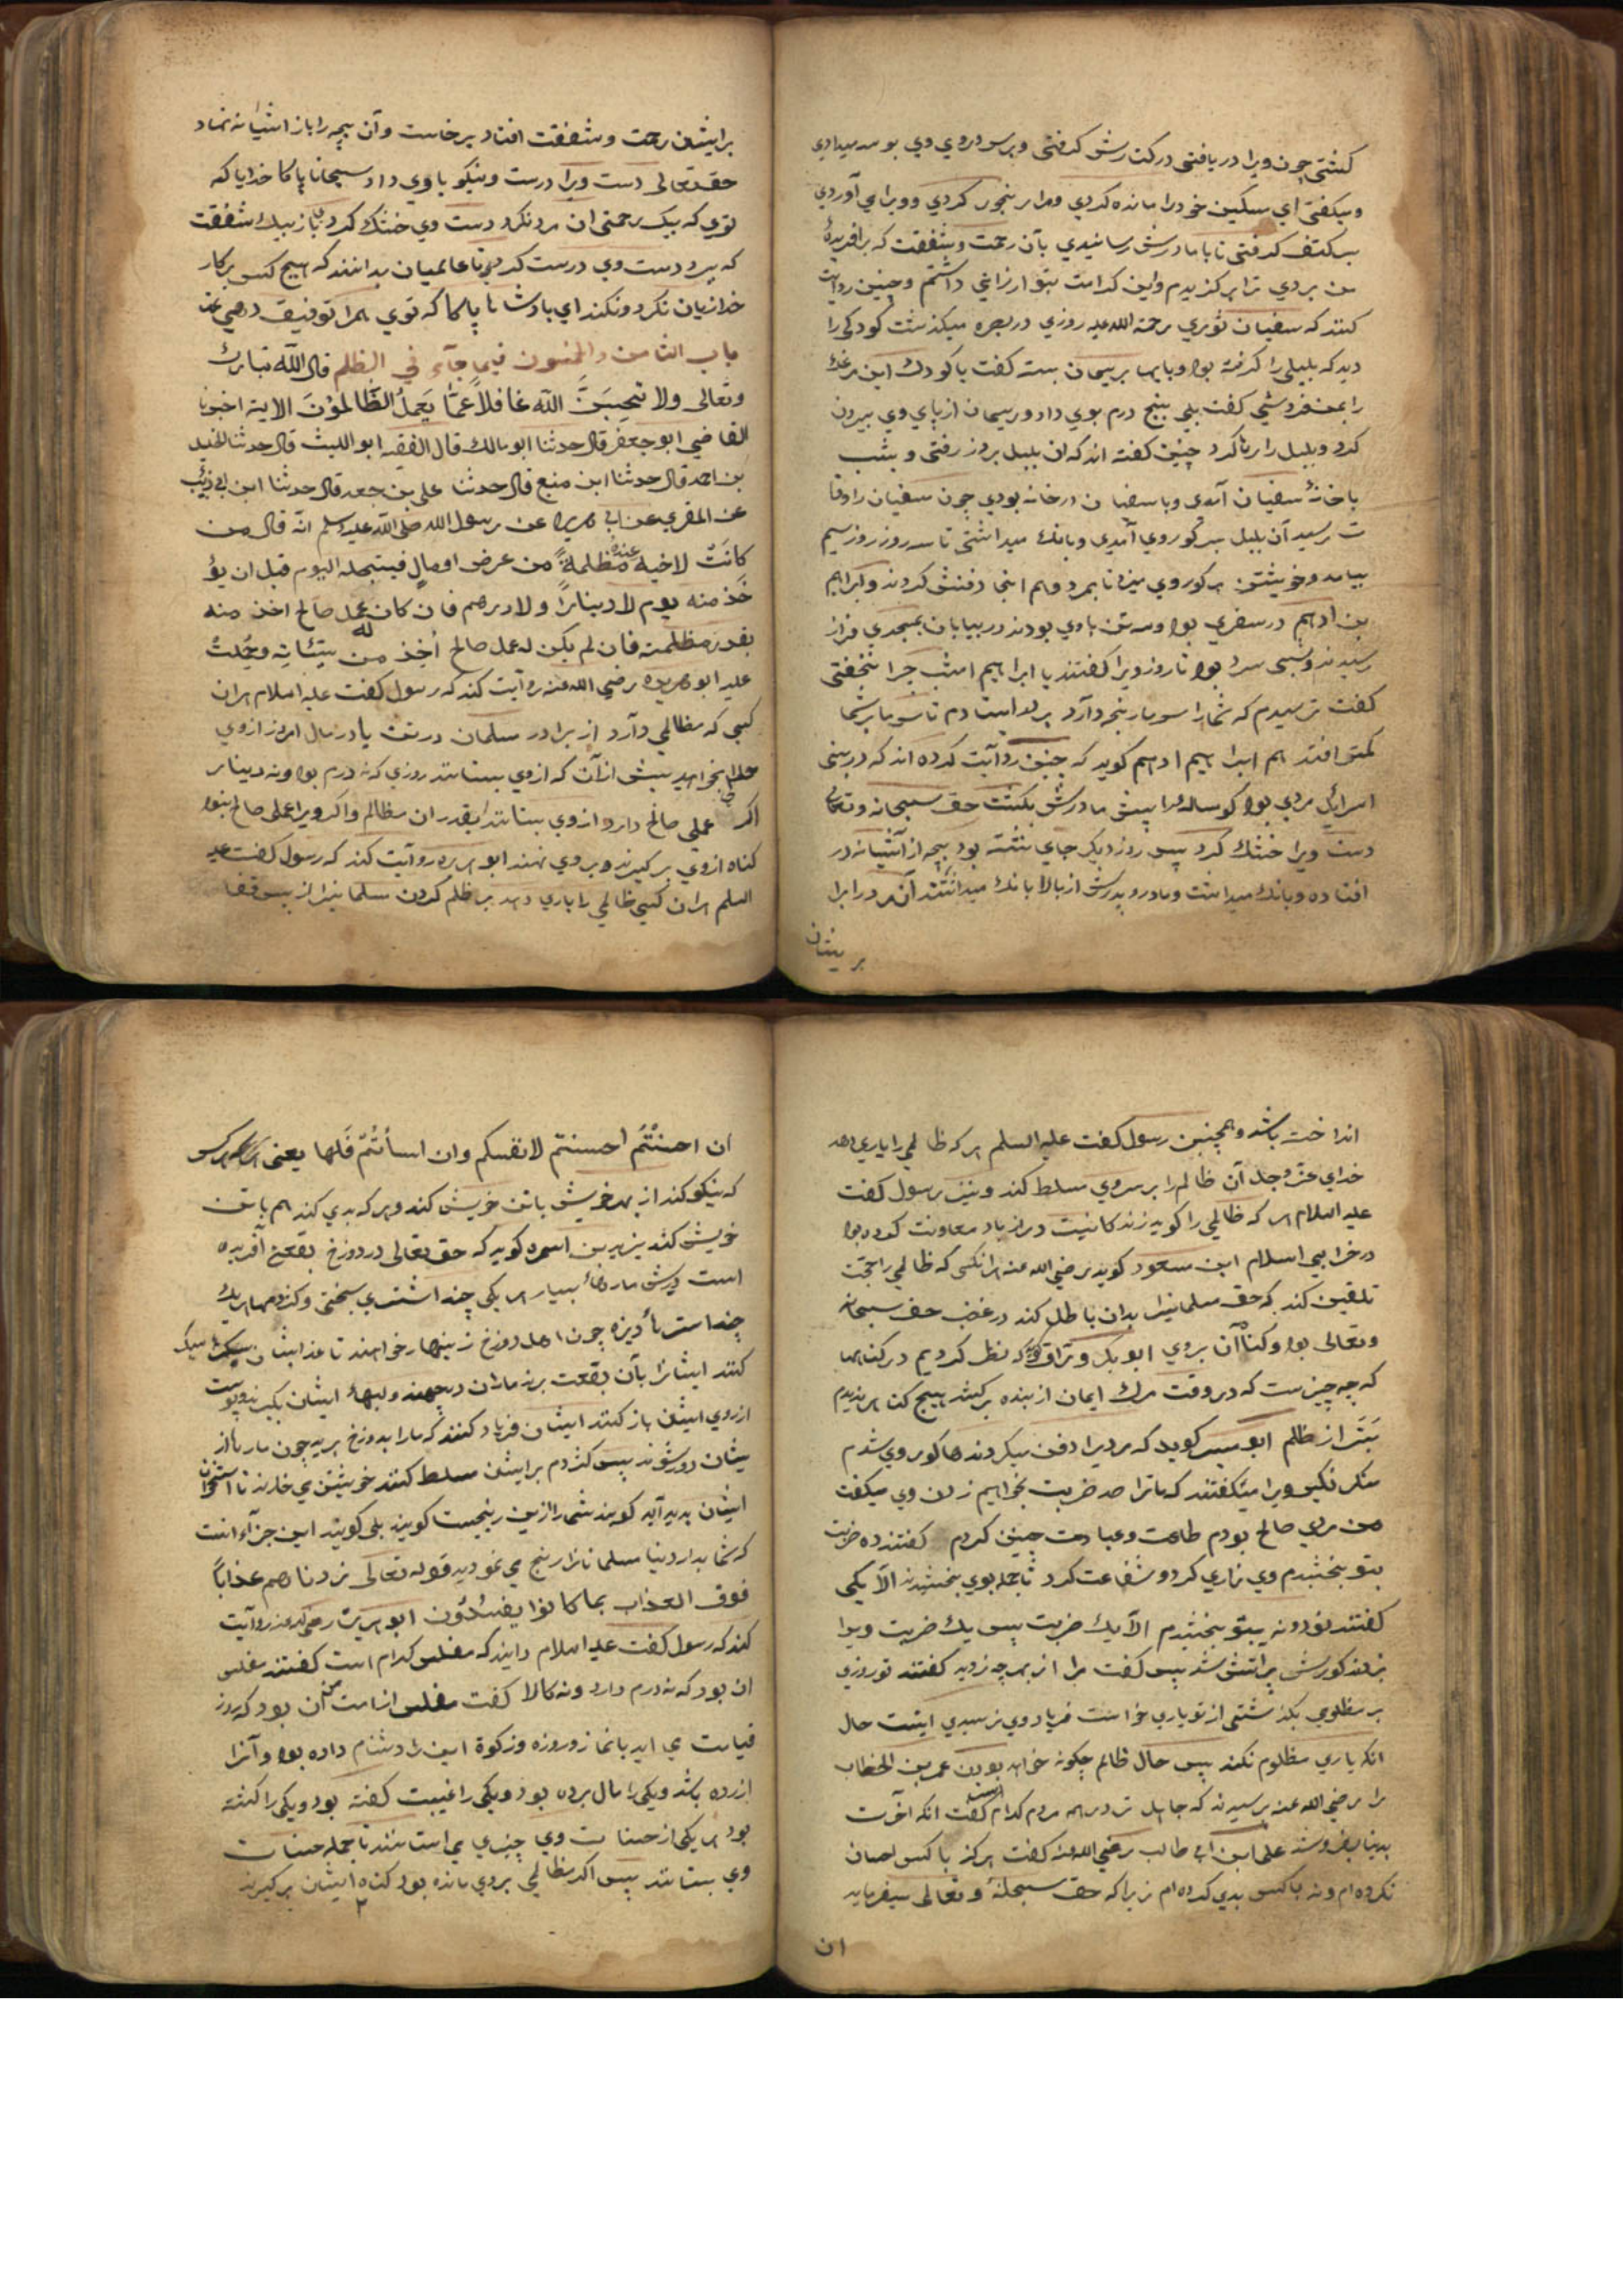 کشتی چون ویرا دریافتی در کنارش کرفتی و بر سر و روي وي بوسه میدادي
و میکفتی اي مسکین خود را مانده کردي و مرا رنجور کردي و ویرا می آوردي
بر کتف کرفتی تا با مادرش رسانیدي بآن رحمت و شفقت که بر آفریدهٔ
من بردي ترا برکزیدم و این کرامت بتو ارزانی داشتم و چنین روایت
کنند که سفیان ثوري رحمة الله علیه روزي در بصره میکذشت کودکی را
دید که بلبلی را کرفته بود و پایها بریسمان بسته کفت یا کودك این مرغك
را بمن فروشی کفت بلی بپنج درم بوي داد و ریسمان از پاي وي بیرون
کرد و بلبل را رها کرد چنین کفته اند که ان بلبل بروز رفتی و بشب
با خانهٔ سفیان آمدي و با سفیان در خانه بودي چون سفیان را وفا
ت رسید آن بلبل بر کور وي آمدي و بانك میداشتی تا سه روز روز سیم
بیامد و خویشتن بر کور وي میزد تا بمرد و هم انجا دفنش کردند و ابراهیم
بن ادهم در سفري بود و سه تن با وي بودند در بیابان بمسجدي فراز
رسیدند و شبی سرد بود تا روز ویرا کفتند یا ابراهیم امشب چرا نخفتی
کفت ترسیدم که شمارا سرما رنجه دارد بر در ایستادم تا سرما بر شما
کمتر افتد هم ابراهیم ادهم کوید که چنین روآیت کرده اند که در بنی
اسرائیل مردي بود کوساله را پیش مادرش بکشت حق سبحانه وتعالی
دست ویرا خشك کرد پس روز دیکر جاي نشسته بود بچه از آشیانه در
افتاده و بانك میداشت و مادر و پدرش از بالا بانك میداشتند آن مرد را
بریشان
بر ایشان رحمت و شفقت افتاد برخاست و آن بچه را باز اشیانه نهاد
حق تعالی دست ویرا درست و نیکو با وي داد سبحانا پاکا خدایا که
توي که بیك بی رحمتی ان مرد نکرد دست وي خشك کرد باز بیك شفقت
که ببرد دست وي درست کرد تا عالمیان بدانند که هیچ کس بر کار
خدا زیان نکرد و نکند اي بادشاها پاکا که توي همرا توفیق دهی
باب الثامن والخمسون فیما جآء في الظلم قال الله تبارك
وتعالی ولا تحسبن الله غافلاً عمّا یعمل الظّالمون الایة اخبرنا
القاضی ابو جعفر قال حدثنا ابو مالك قال الفقیه ابو اللیث قال حدثنا الخلیل
بن احمد قال حدثنا ابن منیع قال حدثنا علی بن جعد قال حدثنا ابن ابی ذئب
عن المقري عن ابی هریره عن رسول الله صلی الله علیه وسلم انّه قال من
کانت لاخیه عنده مظلمةً من عرض او مالٍ فلیستحله الیوم قبل ان یؤ
خذ منه یوم لا دیناراً ولا درهم فان کان له عمل صالح اخذ منه
بقدر مظلمته فان لم یکن له عمل صالح اُخذ من سیّئاته وحُملتْ
علیه ابو هریره رضی الله عنه روآیت کند که رسول کفت علیه السلام هر ان
کسی که مظالمی دآرد از برادر مسلمان در تن یا در مال امروز از وي
حلالی بخواهد پیش از آن که از وي بستانند روزي که نه درم بود و نه دینار
اکر عملی صالح دارد از وي بستانند بقدر ان مظالم و اکر ویرا عملی صالح نبود
کناه از وي برکیرند و بر وي نهند ابو هریره روآیت کند که رسول کفت علیه
السلم هر ان کسی ظالمی را یاري دهد بر ظلم کردن مسلمانیرا از پس قفا
انداخت باشد و همچنین رسول کفت علیه السلم هر که ظالمی را یاري دهد
خداي عز وجل آن ظالم را بر سر وي مسلط کند و نیز رسول کفت
علیه السلام هر که ظالمی را کوید زندکانیت دراز باد معاونت کرده بود
در خرابی اسلام ابن مسعود کوید رضی الله عنه هر انکس که ظالمی را حجت
تلقین کند که حق مسلمانیرا بدان باطل کند در غضب حق سبحانه
وتعالی بود و کناه آن بر وي ابو بکر ورّاق کوید که نظر کردیم در کناهها
که چه چیزست که در وقت مرك ایمان از بنده برکشد هیچ کناه ندیدم
بتر از ظلم ابو میسر کوید که مردیرا دفن میکردند ها کور وي شدم
منکر نکیر ویرا میکفتند که ما ترا صد ضربت بخواهیم زدن وي میکفت
من مردي صالح بودم طاعت وعبادت چنین کردم کفتند ده ضربت
بتو بخشیدم وي زاري کرد و شفاعت کرد تا جمله بوي بخشیدند الا یکی
کفتند نود و نه بتو بخشیدم الا یك ضربت پس یك ضربت ویرا
بزدند کورش پر اتش شد پس کفت مرا از بهر چه زدید کفتند تو روزي
بر مظلومی بکذشتی از تو یاري خواست فریاد وي نرسیدي اینست حال
انکه یاري مظلوم نکند پس حال ظالم چکونه خواهد بودن عمر بن الخطاب
را رضی الله عنه پرسیدند که جاهل تر در همه مردم کدام است کفت انکه آخرت
بدنیا بفروشد علی ابن ابی طالب رضی الله عنه کفت هرکز با کس احسان
نکرده ام و نه با کس بدي کرده ام زیرا که حق سبحانهٔ و تعالی میفرماید
ان
ان احسنتم احسنتم لانفسکم وان اساتُم فلها یعنی هر کس
که نیکو کند از بهر خویش با تن خویش کند و هر که بدي کند هم با تن
خویش کند یزید بن اسمره کوید که حق تعالی در دوزخ بقعتی آفریده
است درش مارها بسیار هر یکی چند اشتري بختی و کزدمها هر یك
چند استر چون اهل دوزخ زینهار خواهند تا عذابشان سبك
کنند ایشانرا بآن بقعت برند ماران درجهند و لبهاء ایشان بکیرند و پوست
از روي ایشان باز کنند ایشان فریاد کنند که ما را بدوزخ برید چون مارها از
یشان دور شوند پس کژدم بر ایشان مسلط کنند خویشتن می خارند تا استخوان
ایشان پدید آید کویند شمارا ازین رنجیست کویند بلی کویند این جزآء انست
که شما بدار دنیا مسلمانانرا رنج می نمودید قوله تعالی زدناهم عذاباً
فوق العذاب بما کانوا یفسدُون ابو هریرت رضی الله عنه روآیت
کند که رسول کفت علیه السلام دانید که مفلس کدام است کفتند مفلس
ان بود که نه درم دارد و نه کالا کفت مفلس از امت من آن بود که روز
قیامت می اید با نماز و روزه و زکوة این را دشنام داده بود و آنرا
ازرده باشد و یکی را مال برده بود و یکی را غیبت کفته بود و یکی را کشته
بود هر یکی از حسنات وي چیزي می استانند تا جمله حسنات
وي بستانند پس اکر مظالمی بر وي مانده بود کناه ایشان برکیرند
۲